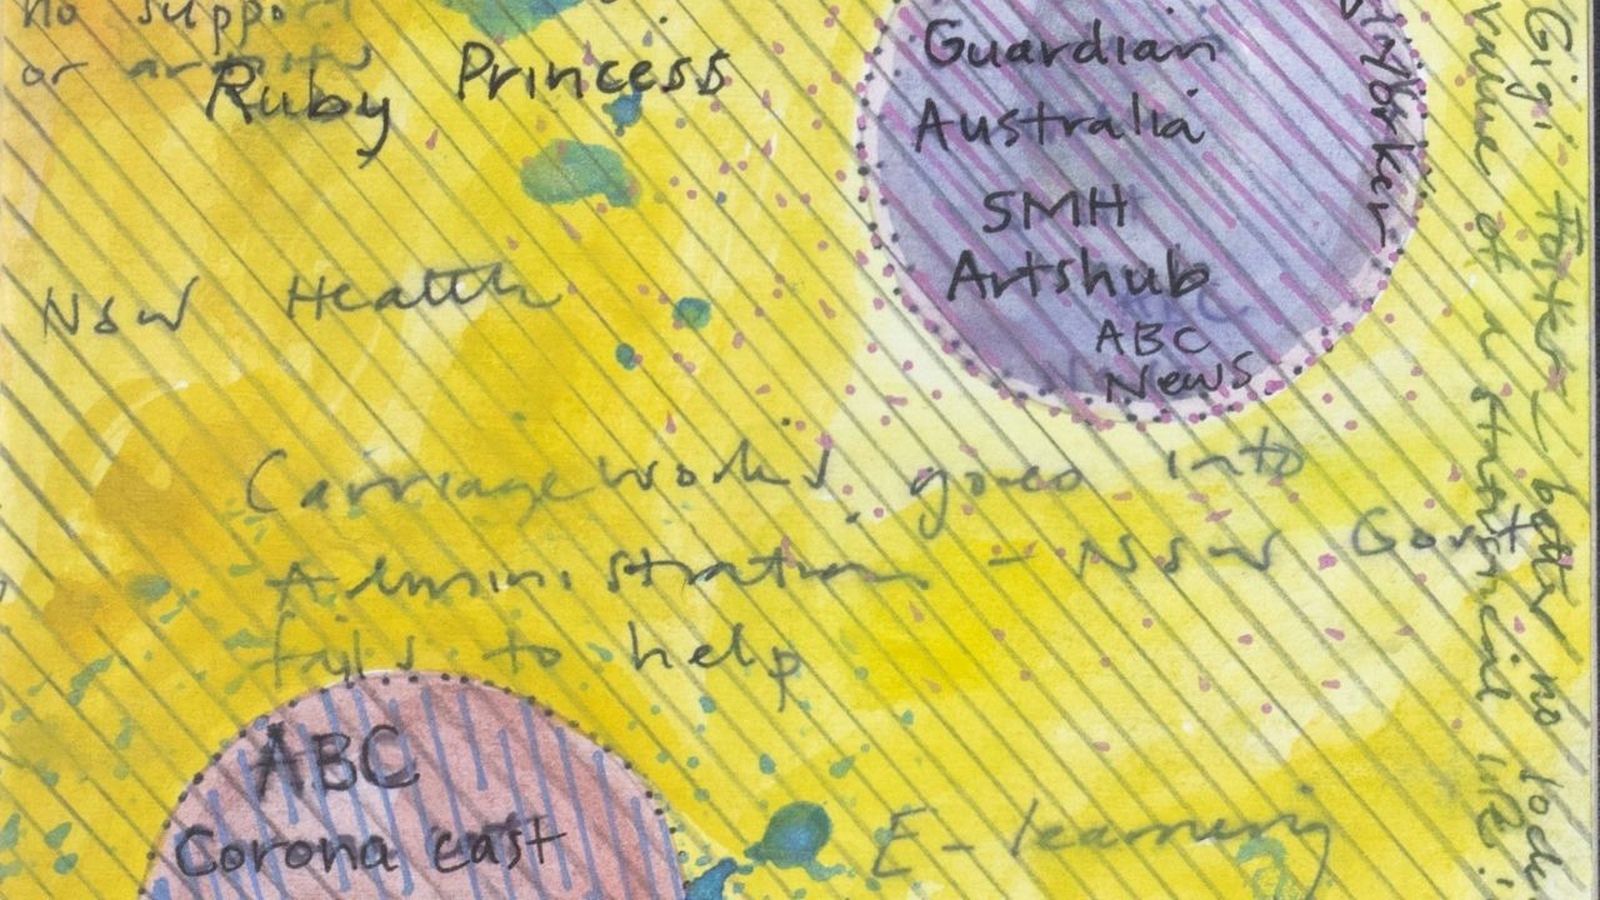 no suppo
or artists
Ruby Princess
Guardian
Australia
SMH
Artshub
ABC
News
Yorker
NSW Health
Carriageworks goes into
Administration - NSW Govt
fails to help
ABC
Corona cast
E-learning
Gigi Foster
value of a statistical life!